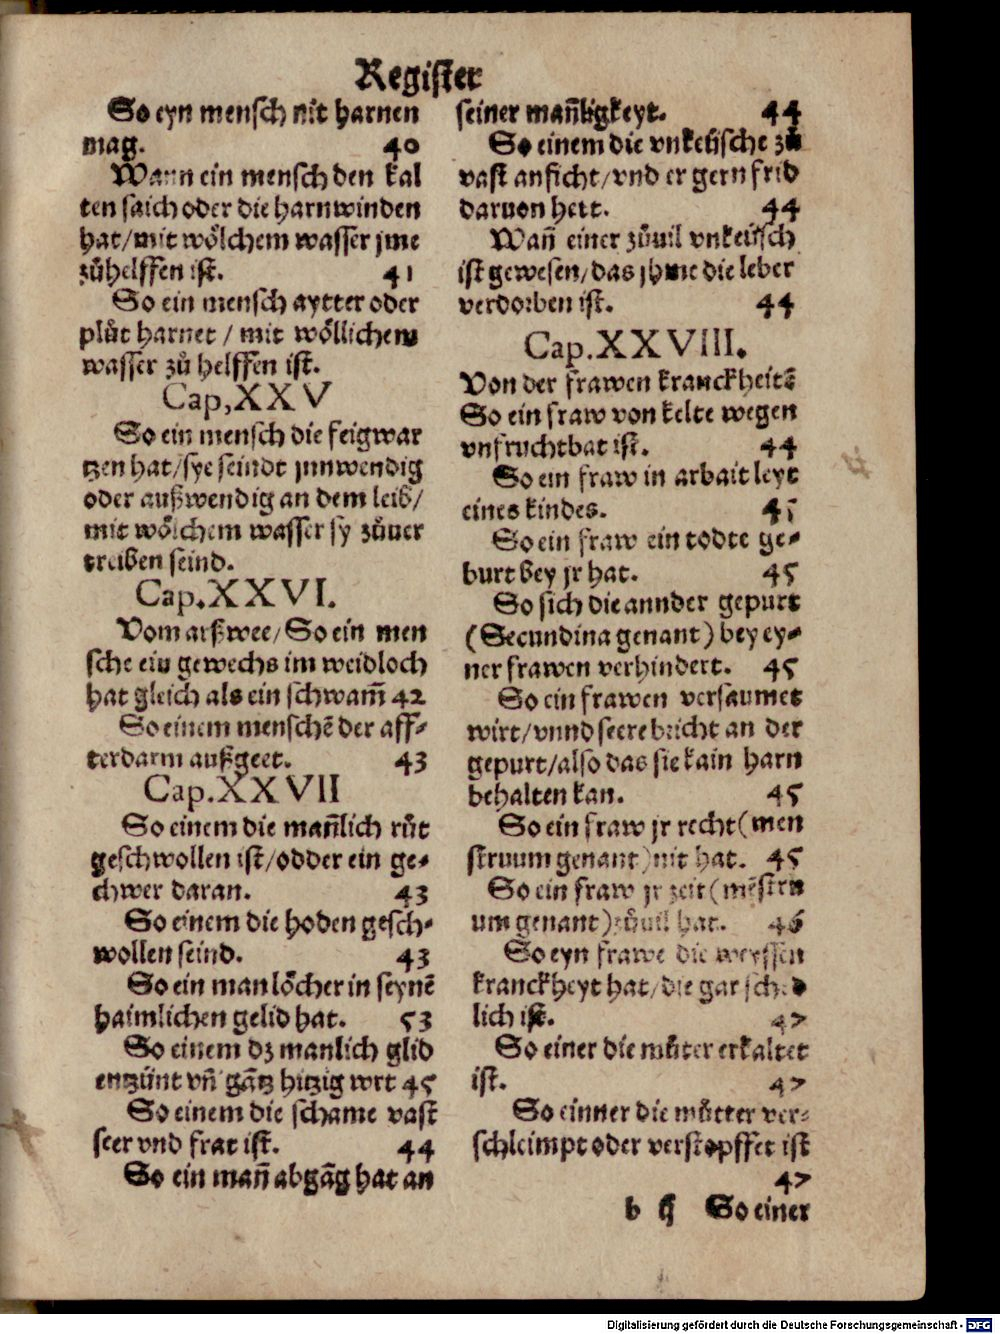 Register
So eyn mensch nit harnen
mag. 40
Wann ein mensch den kal
ten saich oder die harnwinden
hat/mit wölchem wasser jme
zůhelffen ist. 41
So ein mensch aytter oder
plůt harnet / mit wöllichem
wasser zů helffen ist.
Cap,XXV
So ein mensch die feigwar
tzen hat/sye seindt jnnwendig
oder außwendig an dem leib/
mit wölchem wasser sy zůuer
treiben seind.
Cap.XXVI.
Vom arßwee/So ein men
sche ein gewechs im weidloch
hat gleich als ein schwam̃ 42
So einem menschẽ der aff-
terdarm außgeet. 43
Cap.XXVII
So einem die mañlich růt
geschwollen ist/odder ein ge-
chwer daran. 43
So einem die hoden gesch-
wollen seind. 43
So ein man löcher in seynẽ
haimlichen gelid hat. 53
So einem dz manlich glid
entzünt vñ gãtz hitzig wrt 45
So einem die schame vast
seer vnd frat ist. 44
So ein mañ abgãg hat an
seiner mañligkeyt. 44
So einem die vnkeüsche zů
vast anficht/vnd er gern frid
daruon hett. 44
Wañ einer zůuil vnkeüsch
ist gewesen/das jhme die leber
verdorben ist. 44
Cap.XXVIII.
Von der frawen kranckheitẽ
So ein fraw von kelte wegen
vnfruchtbat ist. 44
So ein fraw in arbait leyt
eines kindes. 45
So ein fraw ein todte ge-
burt bey jr hat. 45
So sich die annder gepurt
(Secundina genant) bey ey-
ner frawen verhindert. 45
So ein frawen versaumet
wirt/vnnd seere bricht an der
gepurt/also das sie kain harn
behalten kan. 45
So ein fraw jr recht(men
struum genant)nit hat. 45
So ein fraw jr zeit(mẽstru
um genant)zůuil hat. 46
So eyn frawe die weyssen
kranckheyt hat/die gar sched
lich ist. 47
So einer die můter erkaltet
ist. 47
So einner die můtter ver-
schleimpt oder verstopffet ist
47
b ij So einer
Digitalisierung gefördert durch die Deutsche Forschungsgemeinschaft - DFG